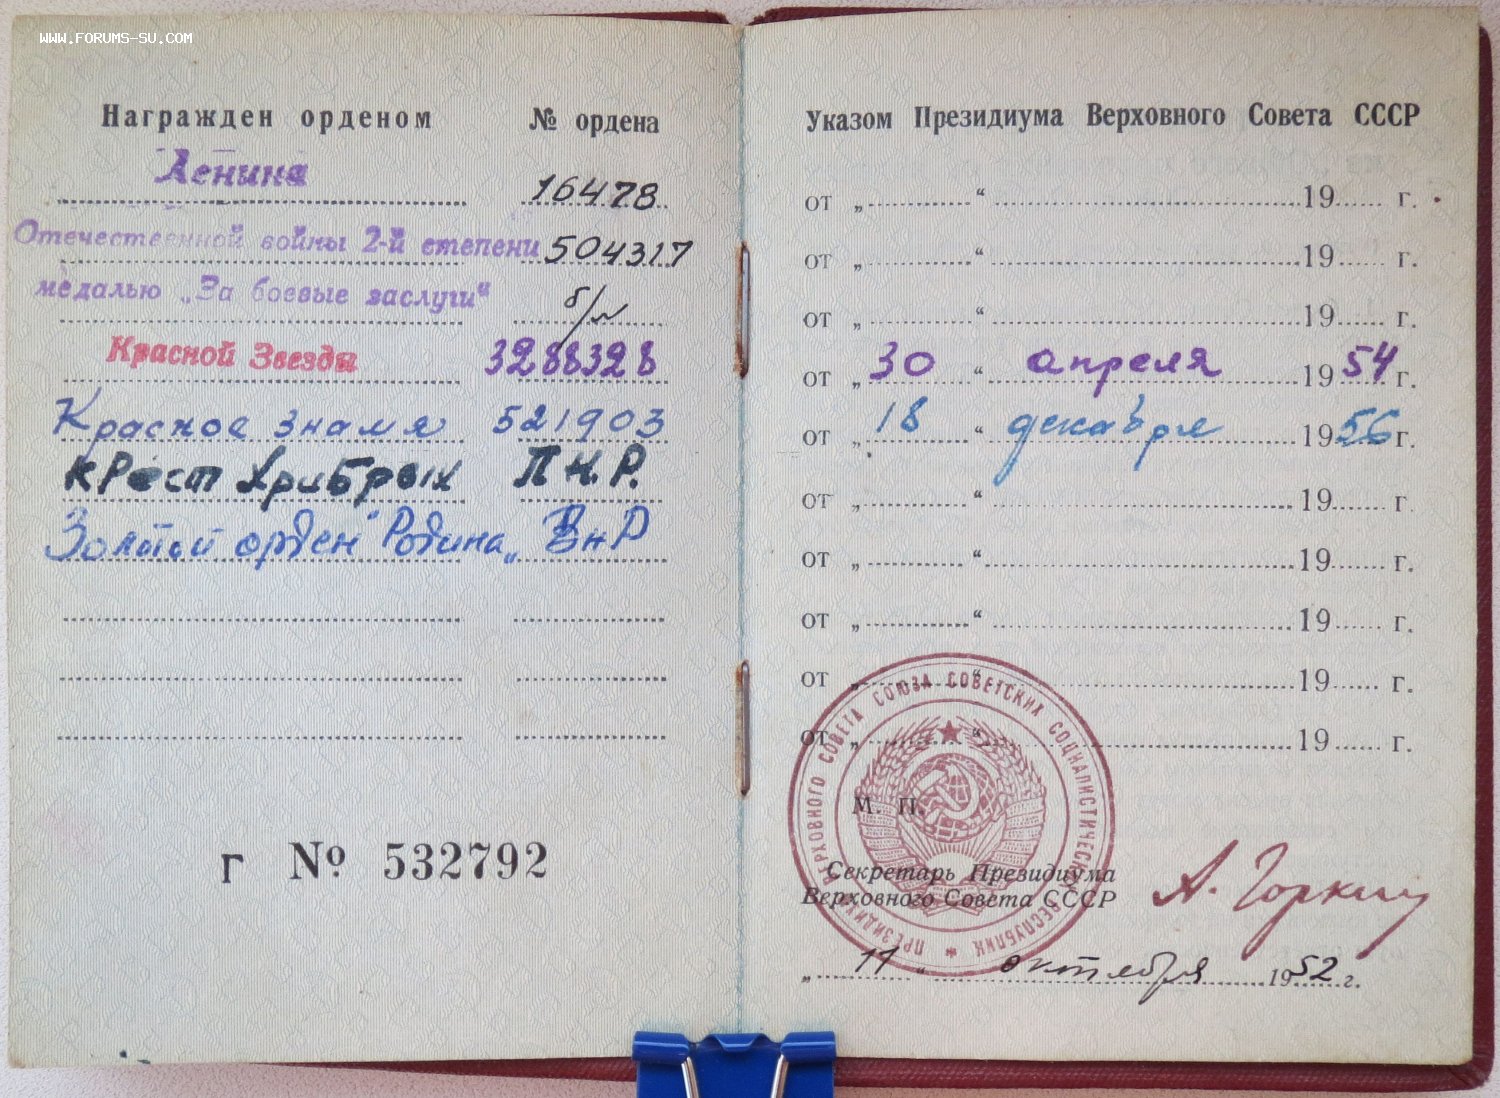 www.forums-su.com
Награжден орденом № ордена
Ленина 16478
Отечественной войны 2-й степени 504317
медалью „За боевые заслуги" б/н
Красной Звезды 3288328
Красное знамя 521903
Крест Хрибрых П.Н.Р.
Золотой орден "Родина„ ВнР
Г № 532792
Указом Президиума Верховного Совета СССР
от „ “ 19 г.
от „ “ 19 г.
от „ “ 19 г.
от „ 30 “ апреля 1954 г.
от „ 18 “ декабря 1956 г.
от „ “ 19 г.
от „ “ 19 г.
от „ “ 19 г.
от „ “ 19 г.
от „ “ 19 г.
ПРЕЗИДИУМ ВЕРХОВНОГО СОВЕТА СОЮЗА СОВЕТСКИХ СОЦИАЛИСТИЧЕСКИХ РЕСПУБЛИК
М. П.
Секретарь Президиума
Верховного Совета СССР
А. Горкин
„ 11 “ октября 1952 г.